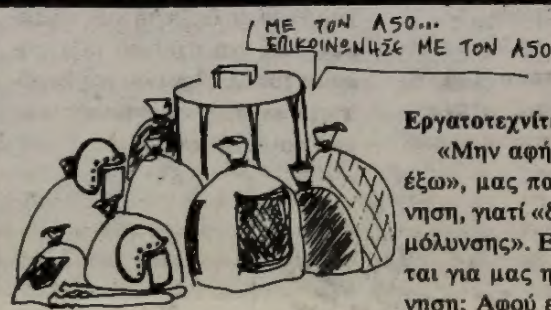 ΜΕ ΤΟΝ Α50...
ΕΠΙΚΟΙΝΩΝΗΣΕ ΜΕ ΤΟΝ Α50
Εργατοτεχνίτ
«Μην αφή
έξω», μας πα
νηση, γιατί «δ
μόλυνσης». Ε
ται για μας η
νηση; Αφού ε